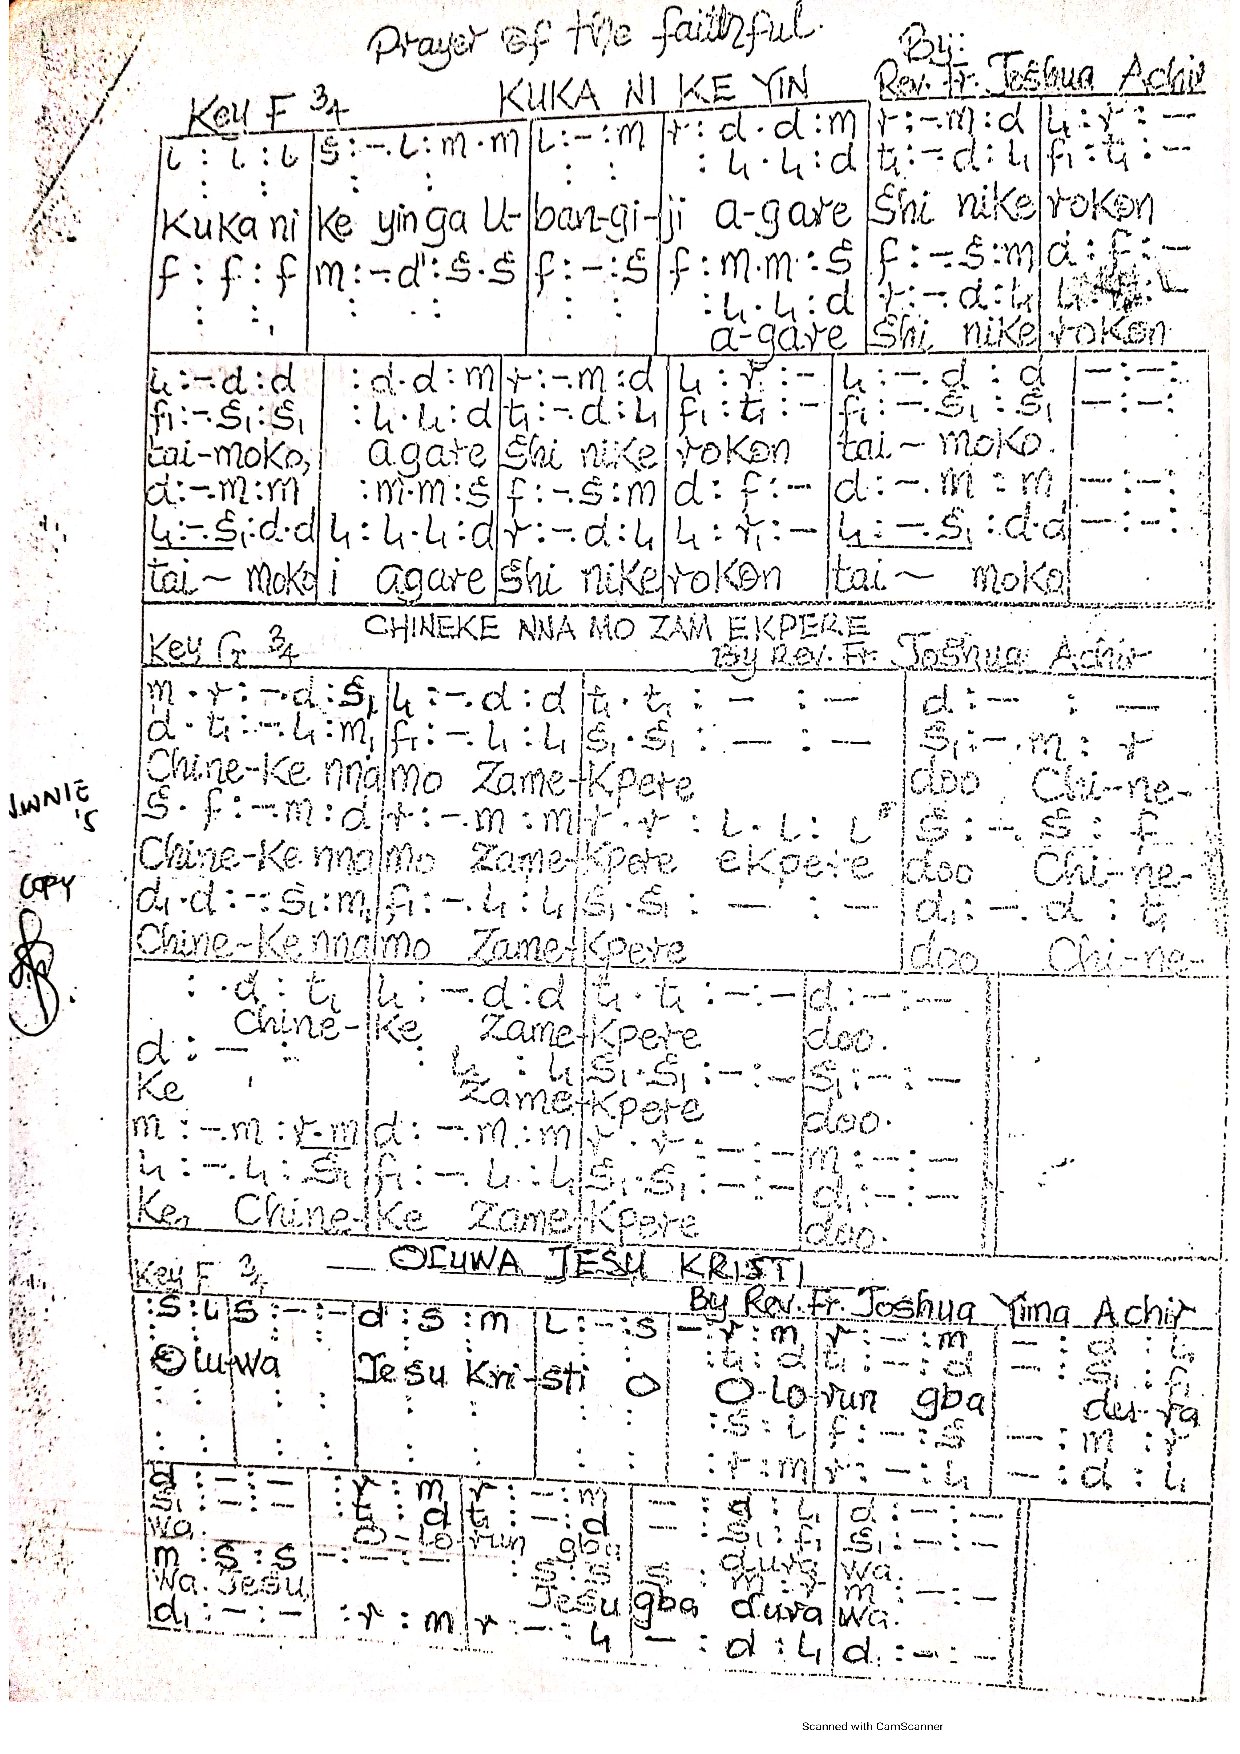 Prayer of the faithful.
By:
KUKA NI KE YIN
Rev. Fr. Joshua Achir
Key F 3/4
l : l : l | s : -. l : m . m | l : - : m | r : d . d : m | r : -. m : d | l₁ : r : -
: : | : : | : : | : l₁ . l₁ : d | t₁ : -. d : l₁ | f₁ : t₁ : -
Kuka ni | ke yin ga U- | ban-gi- | ji a-gare | Shi nike | rokon
f : f : f | m : -. d' : s . s | f : - : s | f : m . m : s | f : -. s : m | d : f : -
: : | : : | : : | : l₁ . l₁ : d | r : -. d : l₁
a-gare | Shi nike | rokon
l₁ : -. d : d | : d . d : m | r : -. m : d | l₁ : r : - | l₁ : -. d : d | - : - :
f₁ : -. s₁ : s₁ | : l₁ . l₁ : d | t₁ : -. d : l₁ | f₁ : t₁ : - | f₁ : -. s₁ : s₁ | - : - :
tai-moko, | agare | Shi nike | rokon | tai ~ moko.
d : -. m : m | : m . m : s | f : -. s : m | d : f : - | d : -. m : m | - : - :
l₁ : -. s₁ : d . d | l₁ : l₁ . l₁ : d | r : -. d : l₁ | l₁ : r₁ : - | l₁ : -. s₁ : d . d | - : - :
tai ~ moko | i agare | Shi nike | rokon | tai ~ moko
CHINEKE NNA MO ZAM EKPERE
Key G 3/4
By Rev. Fr. Joshua Achir
m . r : -. d : s₁ | l₁ : -. d : d | t₁ . t₁ : - : - | d : - : -
d . t₁ : -. l₁ : m₁ | f₁ : -. l₁ : l₁ | s₁ . s₁ : - : - | s₁ : -. m : r
Chine-ke nna | mo Zame- | Kpere | doo Chi-ne-
s . f : -. m : d | r : -. m : m | r . r : l . l : l | s : -. s : f
Chine-ke nna | mo Zame- | Kpere ekpere | doo Chi-ne-
d₁ . d : - : s₁ : m₁ | f₁ : -. l₁ : l₁ | s₁ . s₁ : - : - | d₁ : -. d : t₁
Chine-ke nna | mo Zame- | Kpere | doo Chi-ne-
JWNIE
'S
COPY
: . d : t₁ | l₁ : -. d : d | t₁ . t₁ : - : - | d : - : -
Chine- | Ke Zame- | Kpere | doo.
d : - : | : l₁ : l₁ | s₁ . s₁ : - : - | s₁ : - : -
Ke | Zame- | Kpere | doo.
m : -. m : r . m | d : -. m : m | r . r : - : - | m : - : -
l₁ : -. l₁ : s₁ | f₁ : -. l₁ : l₁ | s₁ . s₁ : - : - | d₁ : - : -
Ke, Chine- | Ke Zame- | Kpere | doo.
OLUWA JESU KRISTI
Key F 3/4
By Rev. Fr. Joshua Yima Achir
: s : l | s : - : - | d : s : m | l : - : s | - : r : m | r : - : m | - : d : l₁
: : | : : | : : | : : | : t₁ : d | t₁ : - : d | - : s₁ : f₁
Olu- | wa | Jesu Kri- | sti O | O-lo- | run gba | du-ra
: : | : : | : : | : : | : s : l | f : - : s | - : m : r
: : | : : | : : | : : | : r : m | r : - : l₁ | - : d : l₁
d : - : - | : r : m | r : - : m | - : d : l₁ | d : - : -
s₁ : - : - | : t₁ : d | t₁ : - : d | - : s₁ : f₁ | s₁ : - : -
wa. | O-lo- | run gba | dura | wa.
m : s : s | - : - : - | : s : s | s : m : r | m : - : -
Wa. Jesu, | Jesu | gba dura | wa.
d₁ : - : - | : r : m | r : - : l₁ | - : d : l₁ | d₁ : - : -
Scanned with CamScanner